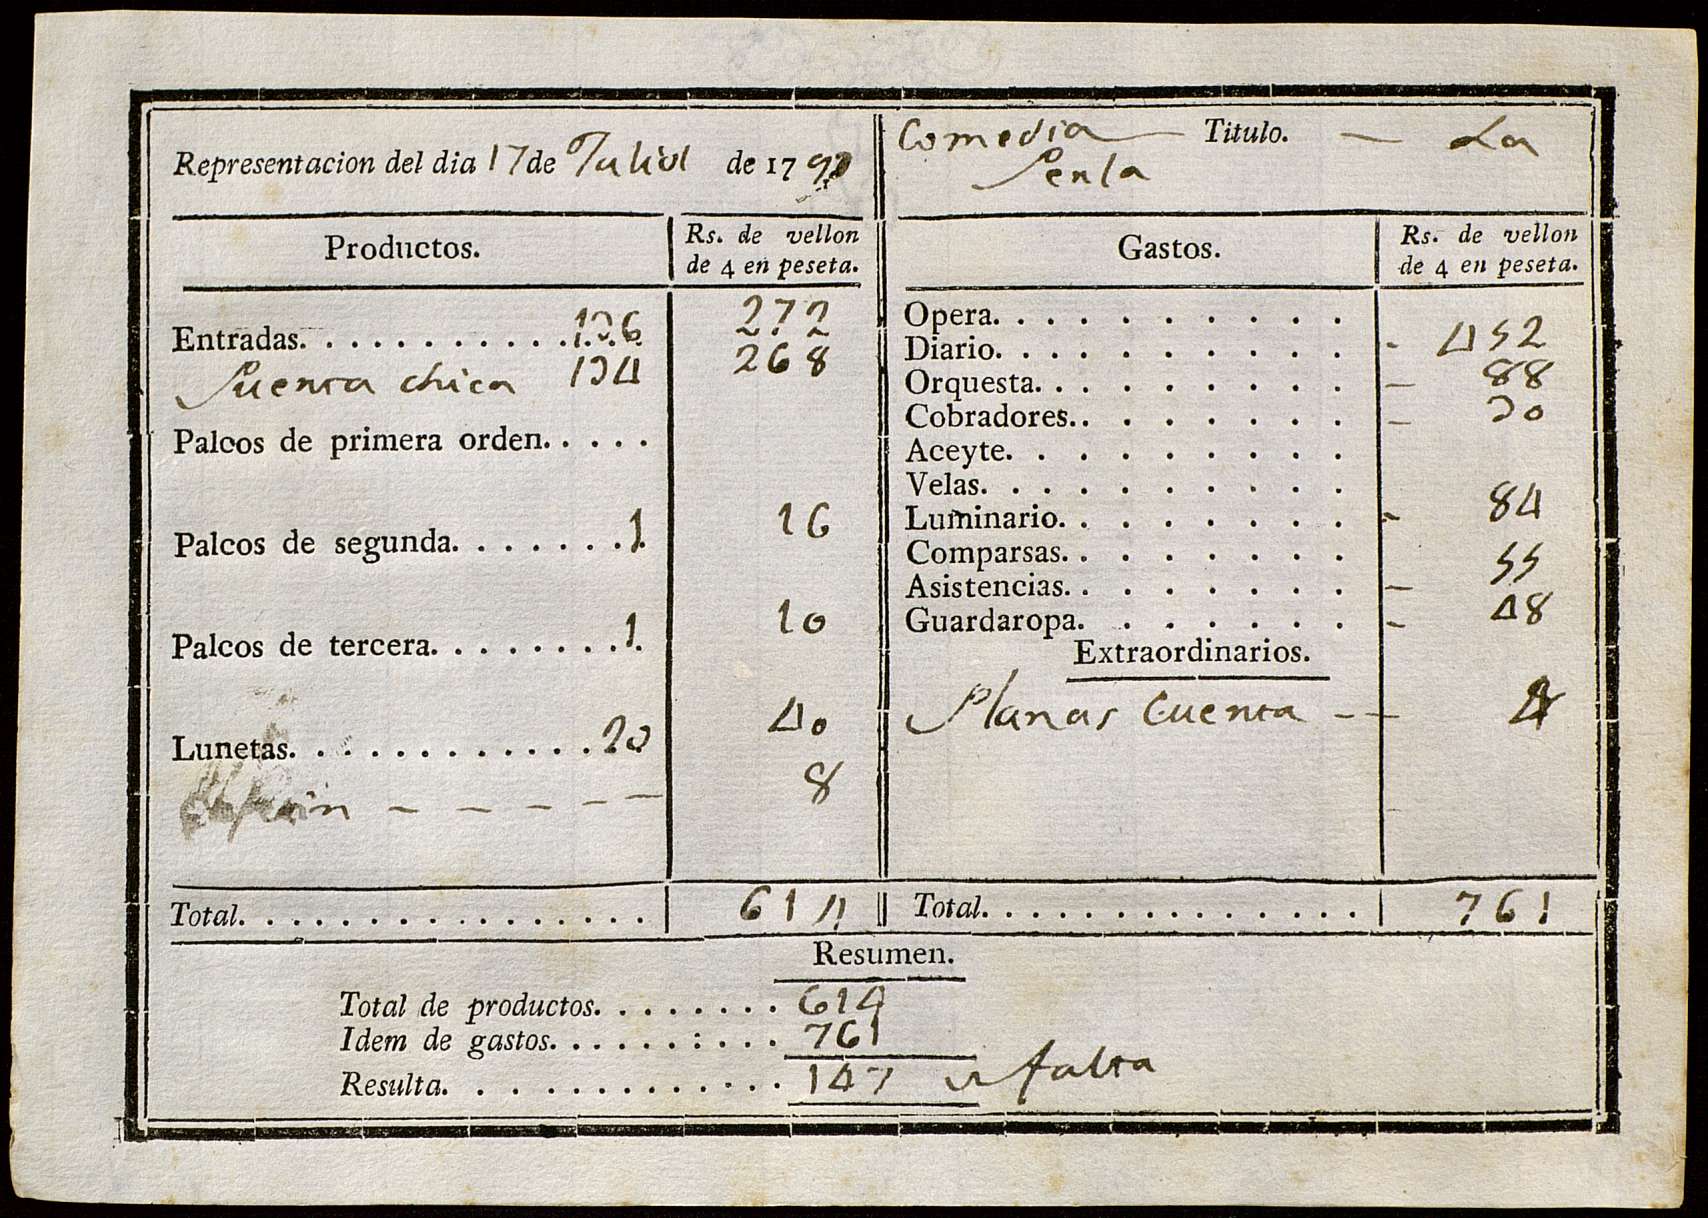 Representacion del dia 17 de Juliol de 17
Comedia — Titulo. — La
Perla
Productos.
Rs. de vellon
de 4 en peseta.
Entradas. . . . . . . . . . . 136 272
Puerta chica 134 268
Palcos de primera orden. . . . .
Palcos de segunda. . . . . . . . 1 16
Palcos de tercera. . . . . . . . . 1 10
Lunetas. . . . . . . . . . . . 20 40
— — — — — — 8
Total. . . . . . . . . . . . . . . . . 614
Gastos.
Rs. de vellon
de 4 en peseta.
Opera. . . . . . . . . .
Diario. . . . . . . . . . - 452
Orquesta. . . . . . . . . — 88
Cobradores. . . . . . . . — 30
Aceyte. . . . . . . . . .
Velas. . . . . . . . . . .
Luminario. . . . . . . . - 84
Comparsas. . . . . . . .
Asistencias. . . . . . . . — 55
Guardaropa. . . . . . . - 48
Extraordinarios.
Planas Cuenta - — 4
Total. . . . . . . . . . . . . . . 761
Resumen.
Total de productos. . . . . . . . 614
Idem de gastos. . . . . . . . . . 761
Resulta. . . . . . . . . . . . . 147 falta